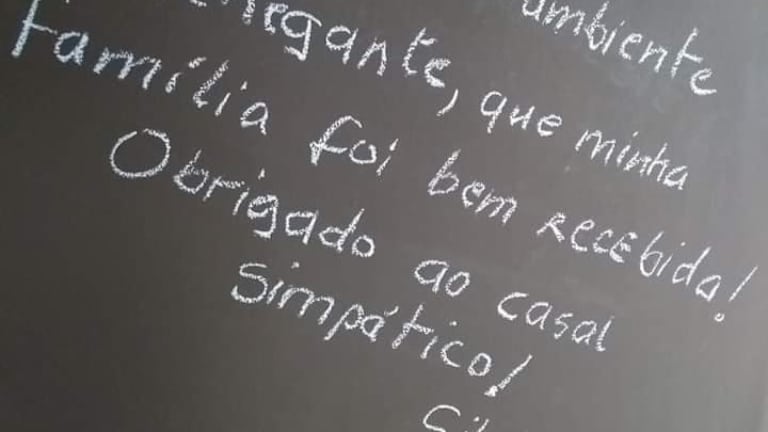 ambiente
que minha
Família foi bem RECEBida!
Obrigado ao casal
Simpático!